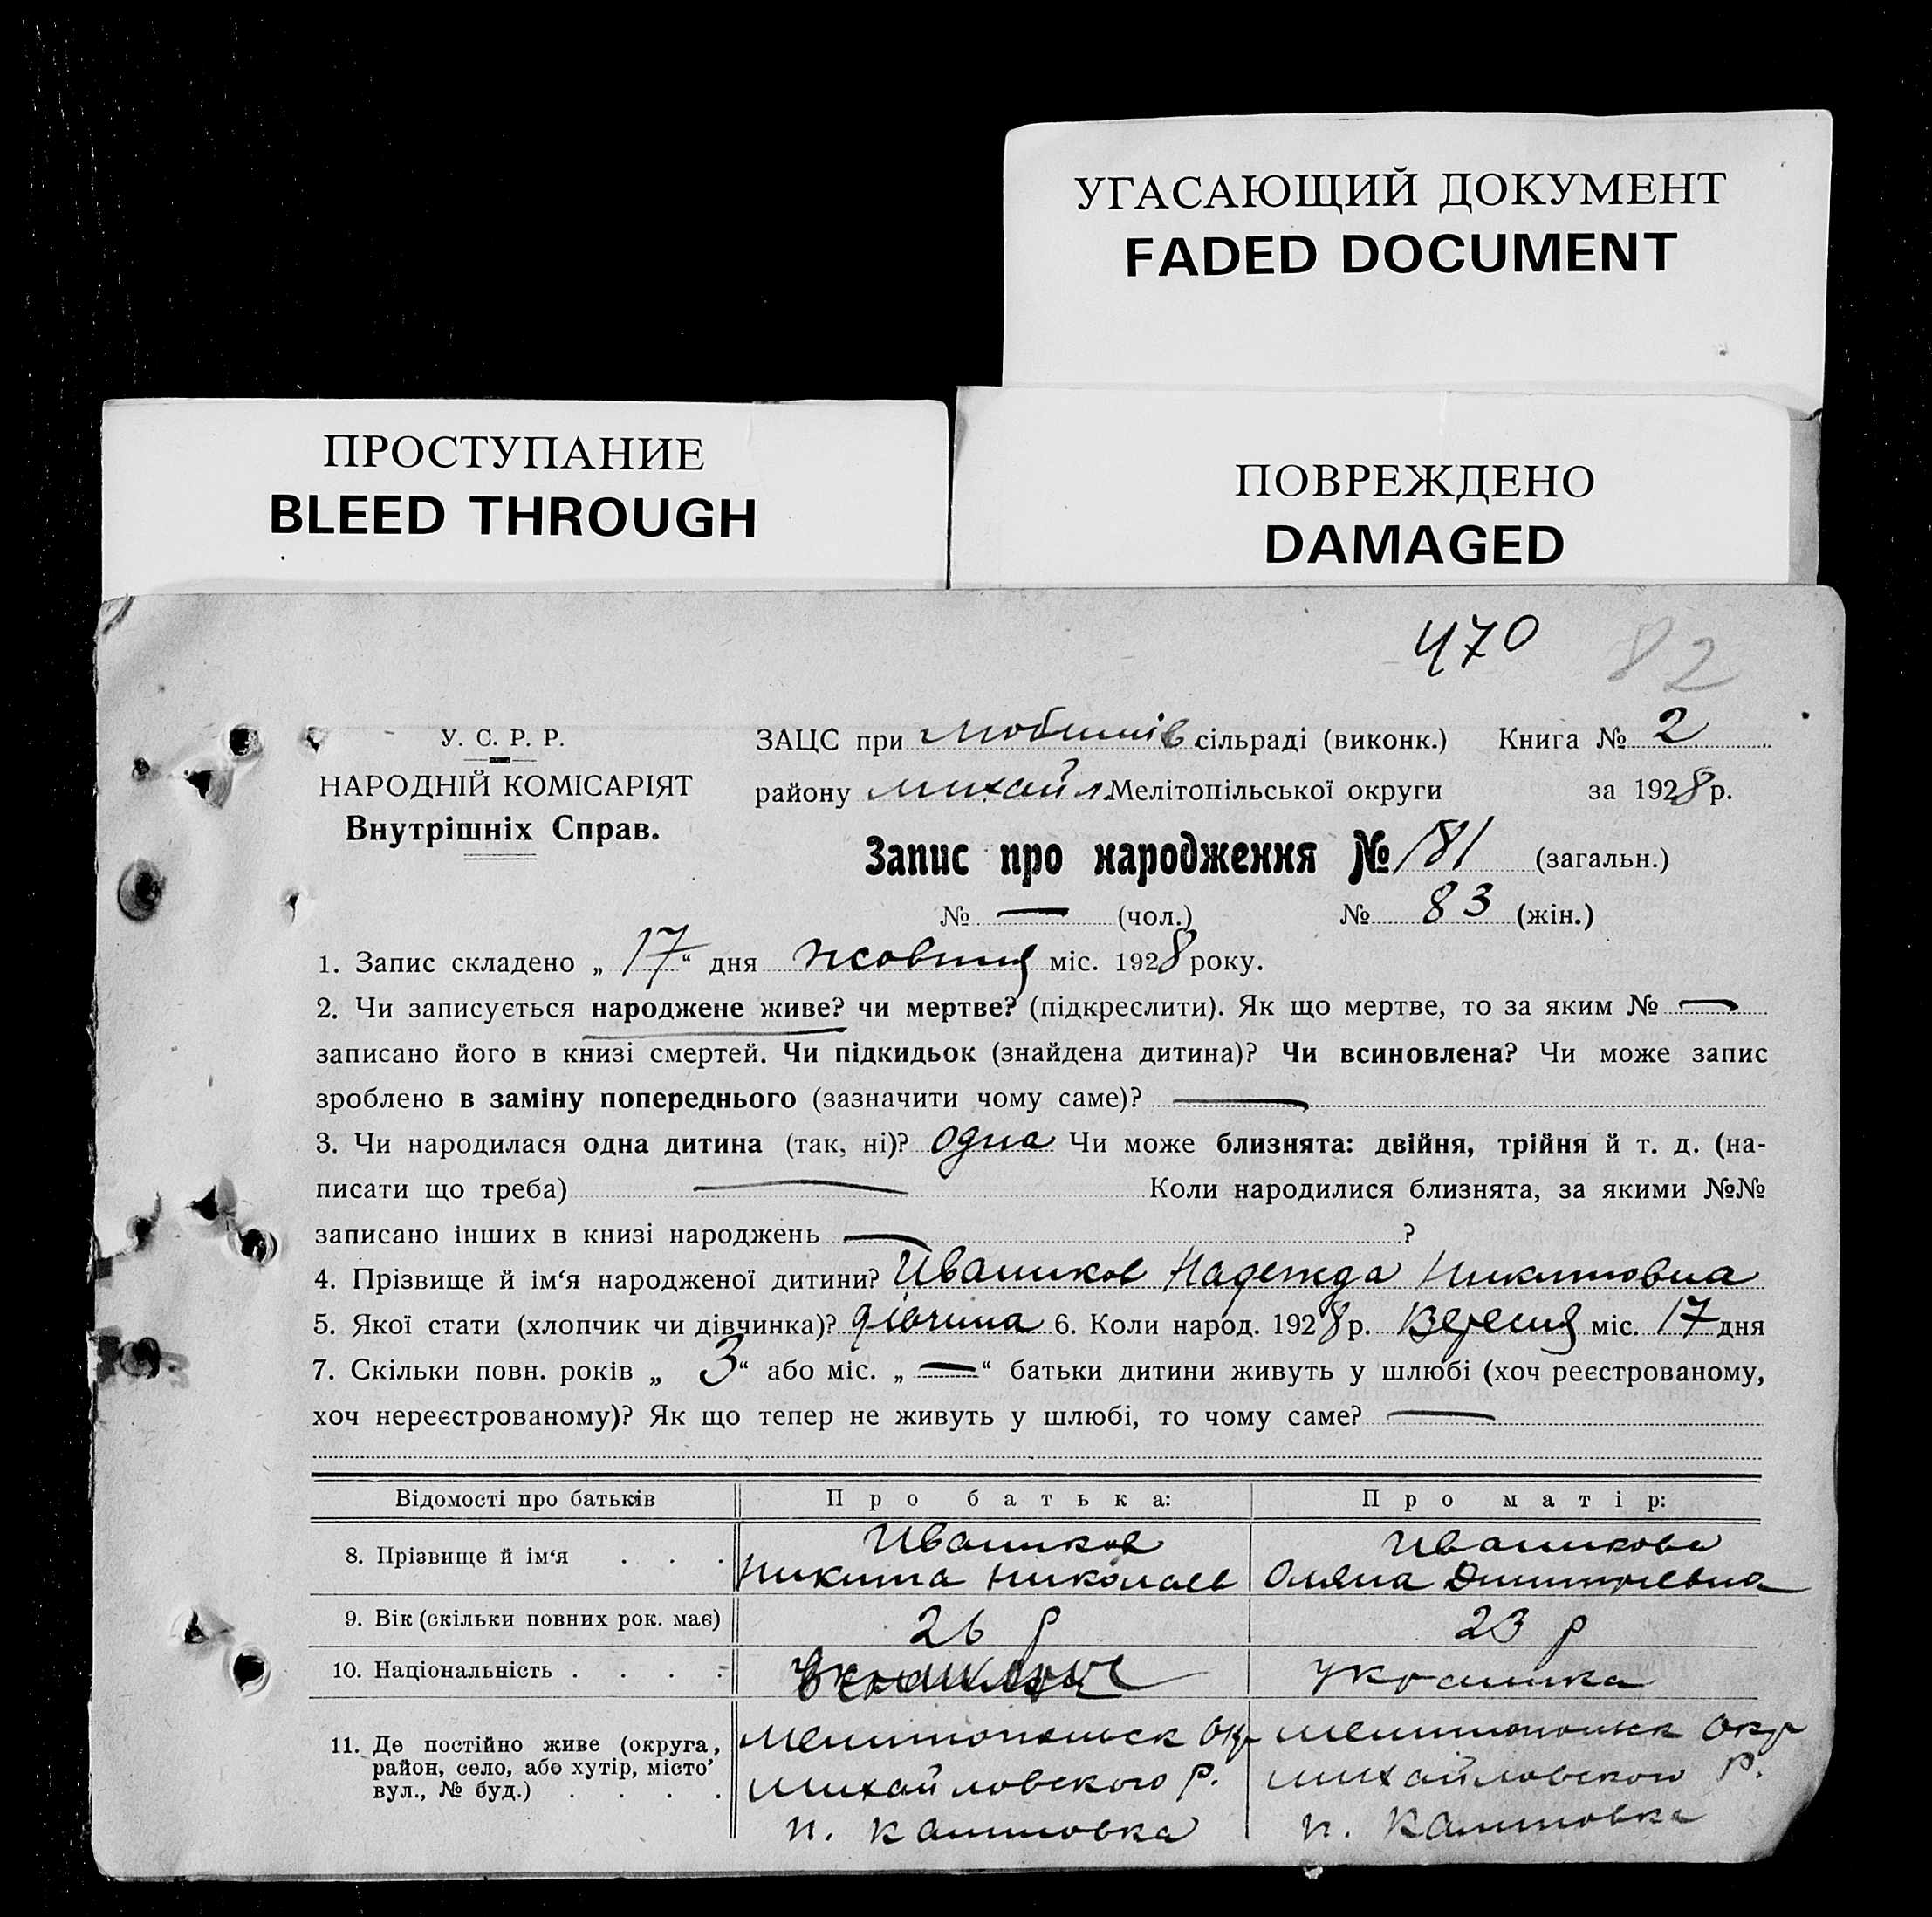 УГАСАЮЩИЙ ДОКУМЕНТ
FADED DOCUMENT
ПРОСТУПАНИЕ
BLEED THROUGH
ПОВРЕЖДЕНО
DAMAGED
470 82
У. С. Р. Р.
НАРОДНІЙ КОМІСАРІЯТ
Внутрішніх Справ.
ЗАЦС при Любимів сільраді (виконк.) Книга № 2
району Михайл. Мелітопільської округи за 1928 р.
Запис про народження № 181 (загальн.)
№ — (чол.) № 83 (жін.)
1. Запис складено „ 17 “ дня жовтня міс. 1928 року.
2. Чи записується народжене живе? чи мертве? (підкреслити). Як що мертве, то за яким № —
записано його в книзі смертей. Чи підкидьок (знайдена дитина)? Чи всиновлена? Чи може запис
зроблено в заміну попереднього (зазначити чому саме)? —
3. Чи народилася одна дитина (так, ні)? одна Чи може близнята: двійня, трійня й т. д. (на-
писати що треба) — Коли народилися близнята, за якими №№
записано інших в книзі народжень — ?
4. Прізвище й ім‘я народженої дитини? Ивашков Надежда Никитовна
5. Якої стати (хлопчик чи дівчинка)? дівчина 6. Коли народ. 1928 р. Вересня міс. 17 дня
7. Скільки повн. років „ 3 “ або міс. „ — “ батьки дитини живуть у шлюбі (хоч реєстрованому,
хоч нереєстрованому)? Як що тепер не живуть у шлюбі, то чому саме? —
Відомості про батьків Про батька: Про матір:
8. Прізвище й ім‘я . . . Ивашков Ивашкова
Никита Николаев Оляна Дмитриевна
9. Вік (скільки повних рок. має) 26 р 23 р
10. Національність . . . . украинка
11. Де постійно живе (округа, район, село, або хутір, місто’ вул., № буд.) . . . .
Мелитопольск Окр Мелитопольск Окр
Михайловского р. Михайловского р.
п. п.